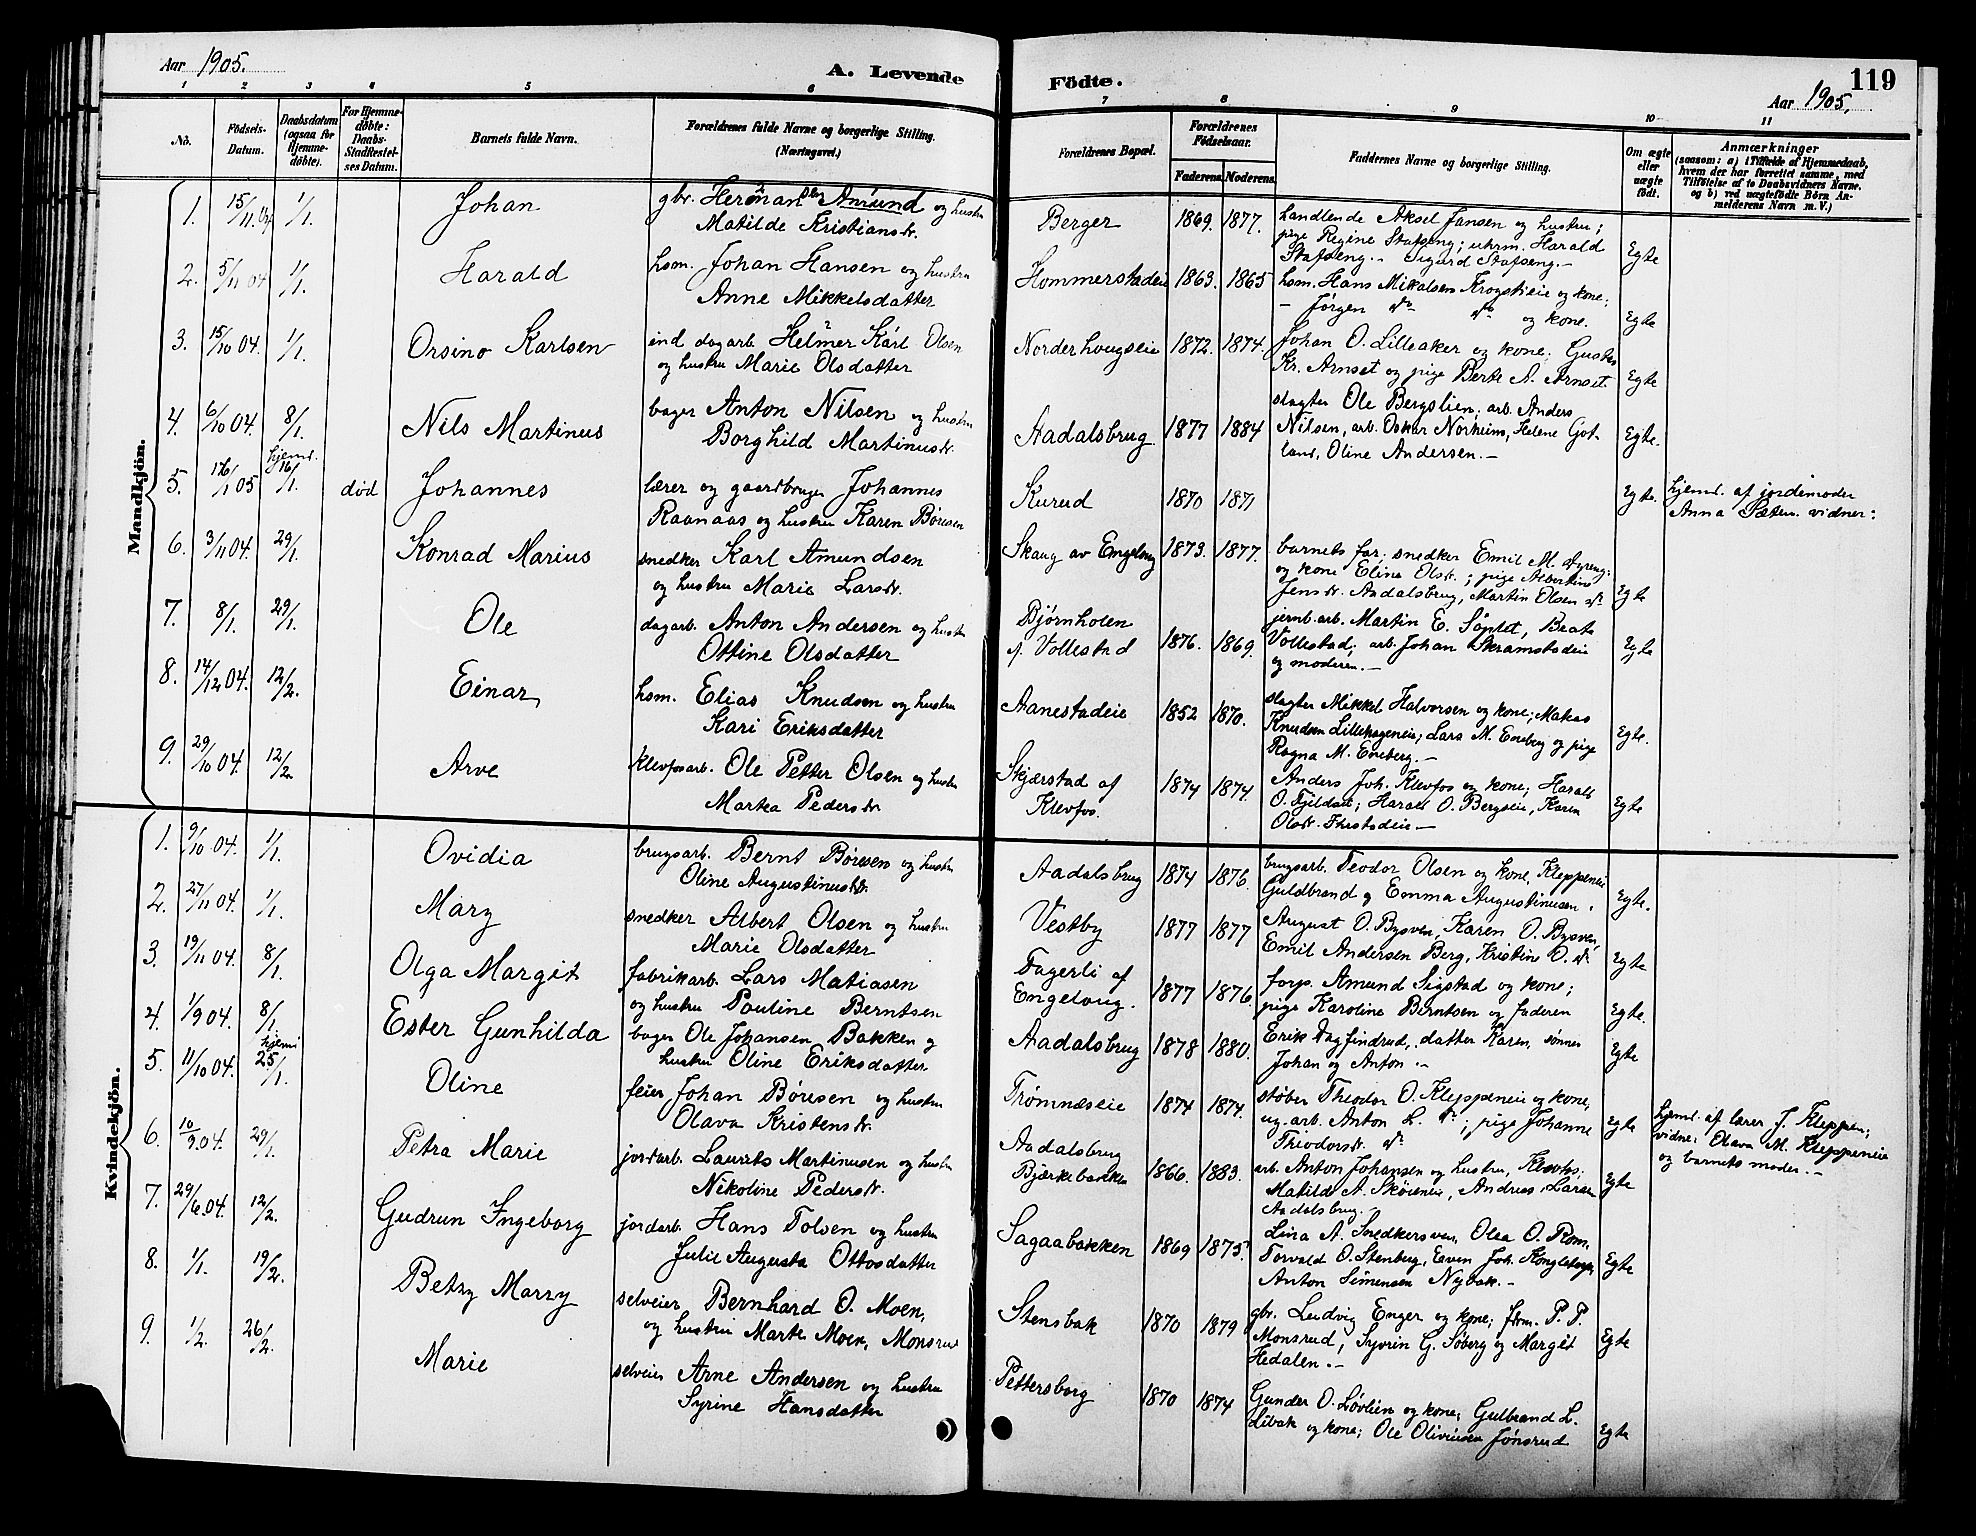 Aar 1905.
A. Levende Födte.
119
Aar 1905.
1 2 3 4 5 6 7 8 9 10 11
No.
Födsels-Datum.
Daabsdatum (ogsaa for Hjemme-döbte).
For Hjemme-döbte: Daabs-Stadfæstel-ses Datum.
Barnets fulde Navn.
Forældrenes fulde Navne og borgerlige Stilling.
(Næringsvei.)
Forældrenes Bopæl.
Forældrenes Födselsaar.
Faderens. Moderens.
Faddernes Navne og borgerlige Stilling.
Om ægte eller uægte født.
Anmærkninger
(saasom: a) i Tilfælde af Hjemmedaab,
hvem der har forrettet samme, med
Tilföielse af to Daabsvidners Navne,
og b) ved uægtefödte Börn An-
melderens Navn m. V.)
Mandkjön.
1. 15/11 04 1/1. Johan gbr. Herman Amund og hustru
Matilde Kristiansdr. Berger 1869. 1877. handlende Aksel Jansen og hustru;
pige Regine Stafseng; uhrm. Harald
Stafseng. - Sigurd Stafseng. - Egte
2. 5/11 04 1/1. Harald hsm. Johan Hansen og hustru
Anne Mikkelsdatter Hommerstadeie 1863. 1865 hsm. Hans Mikkelsen Krogstieie og kone;
- Jørgen do do og kone. Egte
3. 15/10 04. 1/1. Orsino Karlsen ind dagarb. Helmer Karl Olsen
og hustru Marie Olsdatter Norderhougseie 1872. 1874. Johan O. Lilleaker og kone; Gustav
Kr. Arnset og pige Berte A. Arnset. Egte
4. 6/10 04. 8/1. Nils Martinus bager Anton Nilsen og hustru
Borghild Martinusdr. Aadalsbrug 1877 1884 slagter Ole Bergslien; arb. Anders
Nilsen, arb. Oskar Norheim, Helene Got-
land, Oline Andersen. - Egte.
5. 16/1 05 hjemd. 16/1. død Johannes lærer og gaardbruger Johannes
Raanaas og hustru Karen Børesen Kurud 1870 1871 Egte. hjemd. af jordemoder
Anna Sæten. vidner:
6. 3/11 04. 29/1. Konrad Marius snedker Karl Amundsen
og hustru Marie Larsdr. Skaug av Engelaug 1873. 1877. barnets far; snedker Emil M.
og kone Eline Olsdr.; pige Albertine
Jensdr. Aadalsbrug, Martin Olsen do Egte
7. 8/1. 29/1. Ole dagarb. Anton Andersen og hustru
Ottine Olsdatter Bjørnholen
af Vollestad 1876. 1869. jernb.arb. Martin E. Søptet, Beate
Vollestad; arb. Johan Skramstadeie
og moderen. - Egte
8. 14/12 04. 12/2. Einar hsm. Elias Knudsen og hustru
Kari Eriksdatter Aanestadeie 1852 1870. slagter Mikkel Halvorsen og kone; Makas
Knudsen Lillehageneie; Lars M. Eneberg og pige
Ragna M. Eneberg. - Egte.
9. 29/10 04. 12/2. Arve klevfosarb. Ole Petter Olsen og hustru
Martea Pedersdr. Skjærstad af
Klevfos. 1874 1874. Anders Joh. Klevfos og kone; Harald
O. Kjeldset; Harald O. Bergseie, Karen
Olsdr. Thestadeie - Egte
Kvindekjön.
1. 9/10 04. 1/1. Ovidia brugsarb. Bernt Børesen og hustru
Oline Augustinusdr. Aadalsbrug 1874 1876. brugsarb. Teodor Olsen og kone, Kleppeneie
Guldbrand og Emma Augustinusen. Egte.
2. 27/11 04. 1/1. Mary snedker Albert Olsen og hustru
Marie Olsdatter Vestby 1877 1877 August O. Bysven, Karen O. Bysven,
Emil Andersen Berg, Kristine O. do Egte
3. 19/11 04. 8/1. Olga Margit fabrikarb. Lars Matiasen
og hustru Pauline Berntsen Fagerli af
Engelaug. 1877 1876. forp. Amund Sigstad og kone;
pige Karoline Berntsen og faderen Egte.
4. 1/9 04. 8/1. Ester Gunhilda bager Ole Johansen Bakken og
hustru Oline Eriksdatter Aadalsbrug 1878 1880. Erik Dagfindrud, datter Karen, sønner
Johan og Anton - Egte
5. 11/10 04. hjemd 25/1. Oline feier Johan Børesen og hustru
Olava Kristensdr. Trømnæseie 1874 1874. støber Theodor O. Kleppeneie og kone,
ug. arb. Anton L. do; pige Johanne
Theodorsdr. do Egte hjemd. af lærer J. Kleppen;
vidne: Olava M. Kleppeneie
og barnets moder. -
6. 10/9 04. 29/1. Petra Marie jordarb. Laurits Martinusen og hustru
Nikoline Pedersdr. Aadalsbrug
Bjerkebakken 1866. 1883. arb. Anton Johansen og hustru, Klevfos.
Matilde A. Skøieneie, Andreas Larsen
Aadalsbrug. - Egte
7. 29/6 04. 12/2. Gudrun Ingeborg jordarb. Hans Tolsen og hustru
Julie Augusta Ottosdatter Sagaabakken 1869 1875. Lina A. Snedkersven, Olea O. Rom,
Torvald O. Stenberg, Esven Joh. Konglehagen
Anton Simensen Nybak. - Egte
8. 1/1. 19/2. Betzy Marry selveier Bernhard O. Moen,
og hustru Marte Moen, Monsrud Stensbak 1870 1879 gbr. Ludvig Enger og kone; frm. P. P.
Monsrud, Syverin G. Søberg og Margit
Hedalen. - Egte
9. 1/2. 26/2. Marie selveier Arne Andersen og hustru
Syrine Hansdatter Pettersborg 1870 1874 Gunder O. Løvlien og kone; Gulbrand L.
Libak og kone; Ole Oliviusen Jønsrud Egte